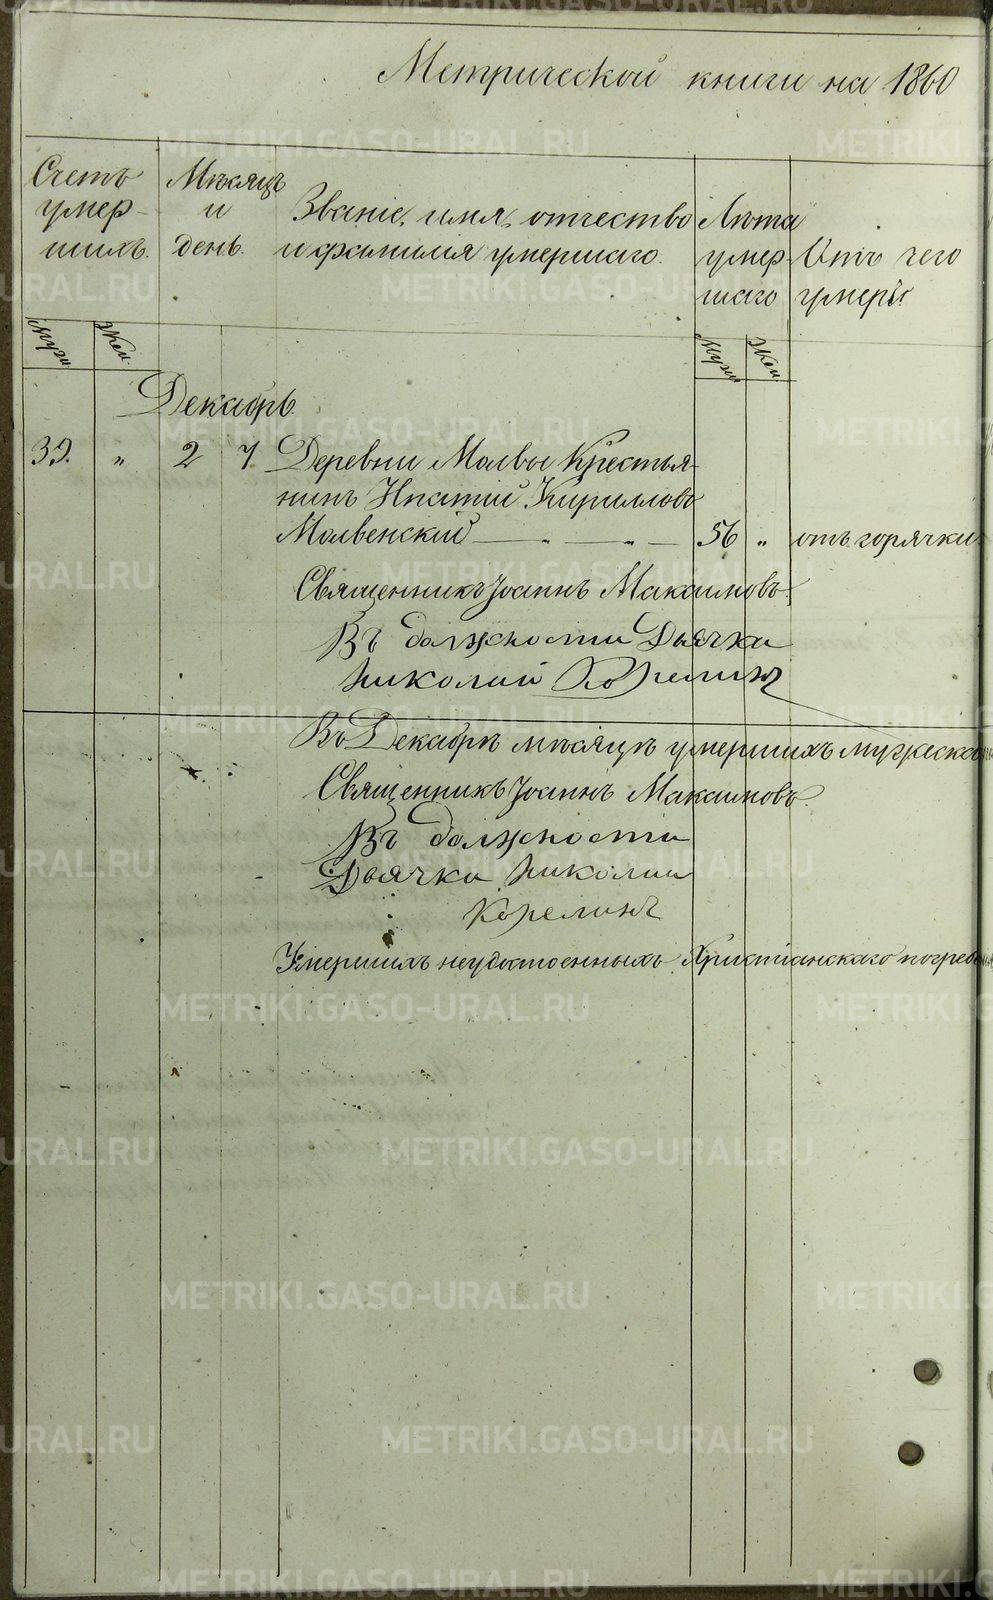 Метрической книги на 1860
Счетъ Мѣсяцъ
умер- и Званіе, имя, отчество Лѣта
шихъ. день. и фамилія умершаго. умер- Отъ чего
шаго умеръ.
Муж. Жен. Муж. Жен.
Декабрь.
39. " 2 7. Деревни Молвы Крестья-
нинъ Ипатій Кирилловъ
Молвенскій — " — " — 56 " отъ горячки
Священникъ Іоаннъ Максимовъ.
Въ должности Дьячка
Николай Корелинъ
Въ Декабрѣ мѣсяцѣ умершихъ мужеска
Священникъ Іоаннъ Максимовъ.
Въ должности
Дьячка Николай
Корелинъ
Умершихъ неудостоенныхъ Христіанскаго погребе
METRIKI.GASO-URAL.RU